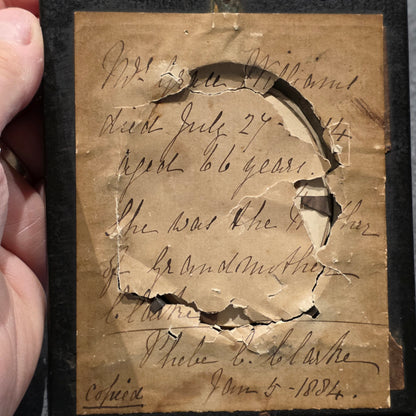 Mrs Grace Williams
died July 27- 44
aged 66 years.
She was the Mother
of Grandmother
Clarke
Phebe C. Clarke
copied Jan 5-1884.